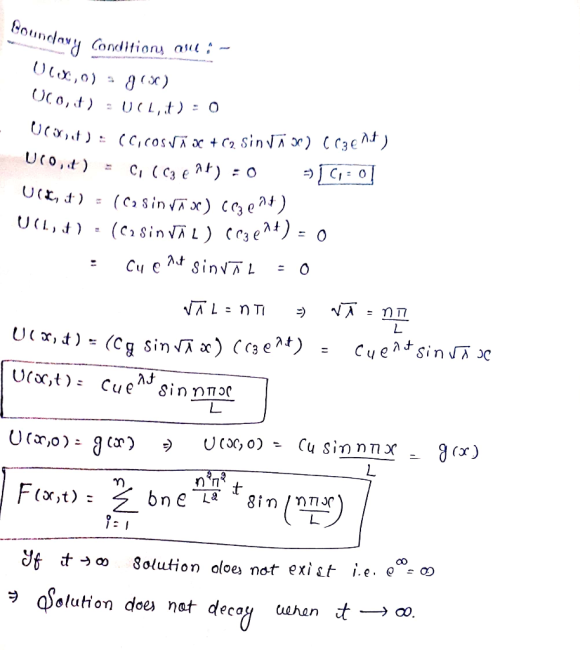 Boundary Conditions are : -
U(x,0) = g(x)
U(0,t) = U(L,t) = 0
U(x,t) = (C₁cos√λ x + C₂ sin√λ x) (C₃e^λt)
U(0,t) = C₁ (C₃ e^λt) = 0 ⇒ C₁ = 0
U(x,t) = (C₂ sin√λ x) (C₃e^λt)
U(L,t) = (C₂ sin√λ L) (C₃e^λt) = 0
= C₄ e^λt sin√λ L = 0
√λ L = nπ ⇒ √λ = nπ/L
U(x,t) = (C₂ sin√λ x) (C₃e^λt) = C₄e^λt sin√λ x
U(x,t) = C₄e^λt sin nπx/L
U(x,0) = g(x) ⇒ U(x,0) = C₄ sin nπx/L = g(x)
F(x,t) = Σ_{i=1}^{n} bn e^{n²π²/L² t} sin (nπx/L)
If t → ∞ solution does not exist i.e. e^∞ = ∞
⇒ Solution does not decay when t → ∞.